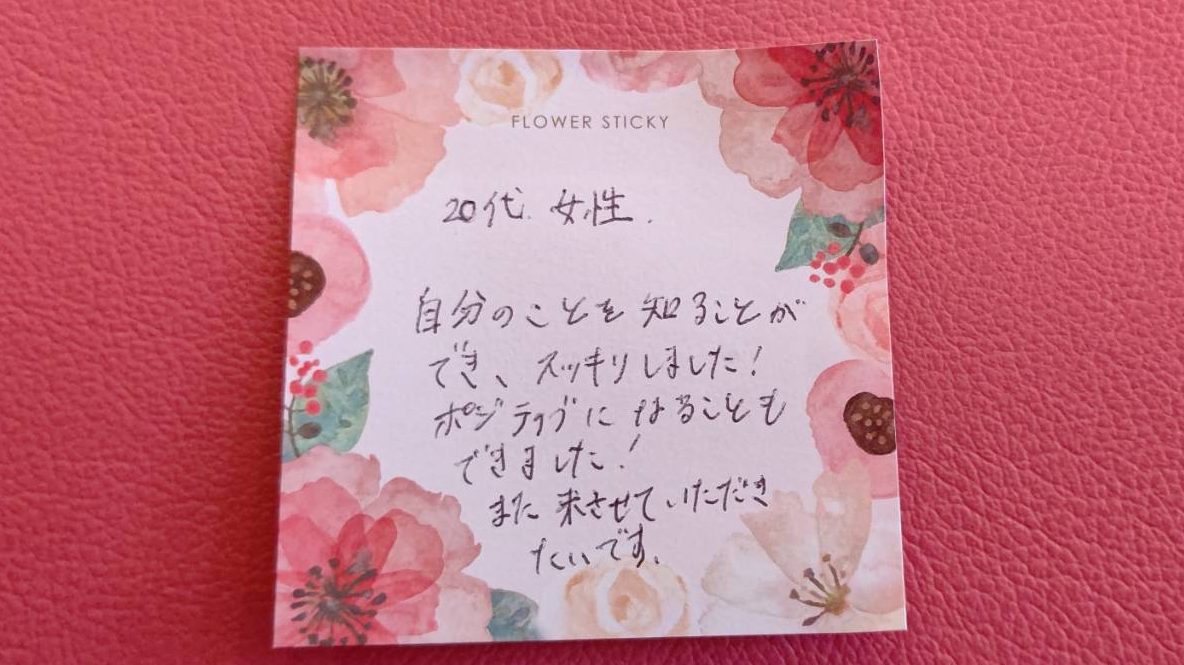 FLOWER STICKY
20代 女性.
自分のことを知ることが
でき、スッキリしました!
ポジティブになることも
できました!
また来させていただき
たいです。